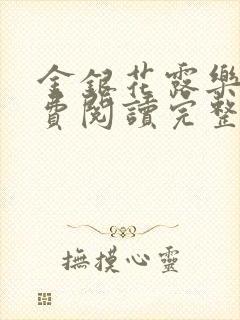 金銀花露樂
費閱讀完整
撫摸心靈